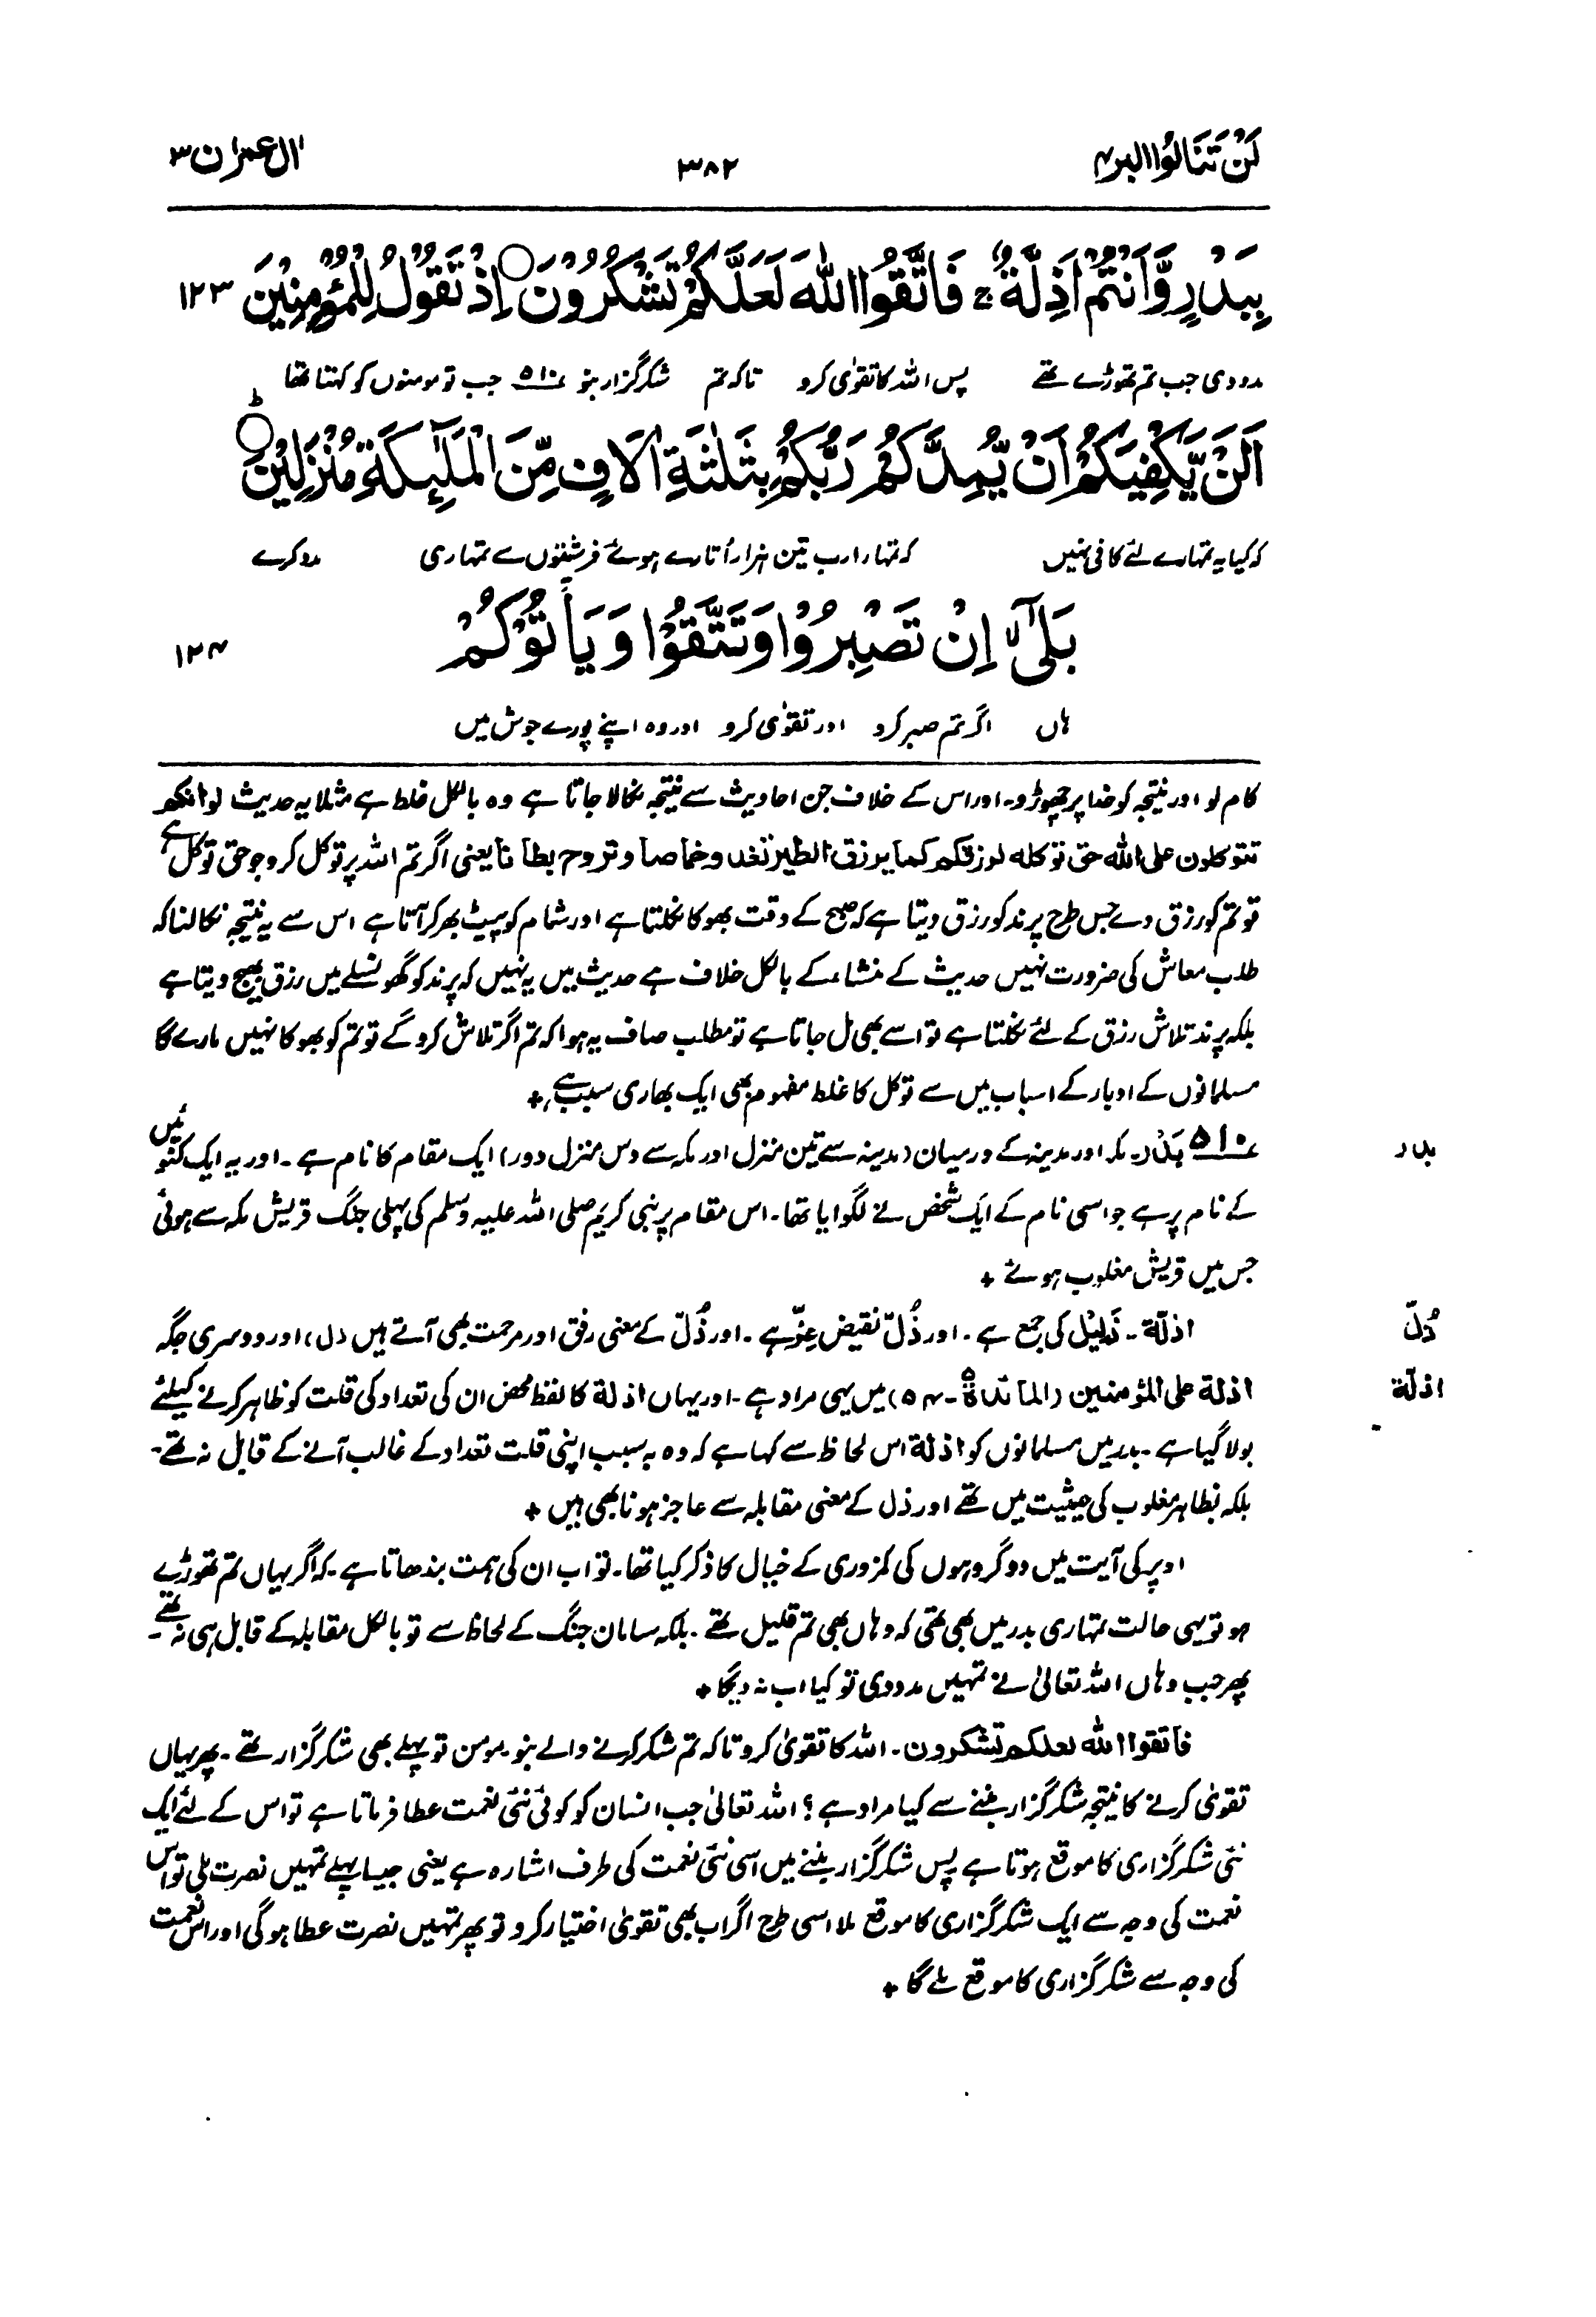 لَنْ تَنَالُوا البر۴
۳۸۲
اٰل عمرٰن ۳
بِبَدْرٍ وَّاَنْتُمْ اَذِلَّةٌ ۚ فَاتَّقُوا اللّٰهَ لَعَلَّكُمْ تَشْكُرُوْنَ ○ اِذْ تَقُوْلُ لِلْمُؤْمِنِيْنَ ۱۲۳
مدد دی جب تم تھوڑے تھے پس اللہ کا تقوٰی کرو تاکہ تم شکر گزار بنو ۵۱۰ جب تو مومنوں کو کہتا تھا
اَلَنْ يَّكْفِيَكُمْ اَنْ يُّمِدَّكُمْ رَبُّكُمْ بِثَلٰثَةِ اٰلَافٍ مِّنَ الْمَلٰٓئِكَةِ مُنْزَلِيْنَ ○ؕ
کہ کیا یہ تمہارے لئے کافی نہیں کہ تمہارا رب تین ہزار اُتارے ہوئے فرشتوں سے تمہاری مدد کرے
بَلٰٓى ۙ اِنْ تَصْبِرُوْا وَتَتَّقُوْا وَيَأْتُوْكُمْ ۱۲۴
ہاں اگر تم صبر کرو اور تقوٰی کرو اور وہ اپنے پورے جوش میں
کام لو اور نتیجہ کو خدا پر چھوڑو۔ اور اس کے خلاف جن احادیث سے نتیجہ نکالا جاتا ہے وہ بالکل غلط ہے مثلا یہ حدیث لوانکم
تتوکلون علی اللہ حق توکلہ لرزقکم کما یرزق الطیر تغدو خماصا و تروح بطانا یعنی اگر تم اللہ پر توکل کرو جو حق توکل ہے
تو تم کو رزق دے جس طرح پرند کو رزق دیتا ہے کہ صبح کے وقت بھوکا نکلتا ہے اور شام کو پیٹ بھر کر آتا ہے اس سے یہ نتیجہ نکالنا کہ
طلب معاش کی ضرورت نہیں حدیث کے منشاء کے بالکل خلاف ہے حدیث میں یہ نہیں کہ پرند کو گھونسلے میں رزق بھیج دیتا ہے
بلکہ پرند تلاش رزق کے لئے نکلتا ہے تو اسے بھی مل جاتا ہے تو مطلب صاف یہ ہوا کہ تم اگر تلاش کرو گے تو تم کو بھوکا نہیں مارے گا
مسلمانوں کے ادبار کے اسباب میں سے توکل کا غلط مفہوم بھی ایک بھاری سبب ہے +
بدر
۵۱۰ بَدْر۔ مکہ اور مدینہ کے درمیان (مدینہ سے تین منزل اور مکہ سے دس منزل دور) ایک مقام کا نام ہے۔ اور یہ ایک کنوئیں
کے نام پر ہے جو اسی نام کے ایک شخص نے لگوایا تھا۔ اس مقام پر نبی کریم صلی اللہ علیہ وسلم کی پہلی جنگ قریش مکہ سے ہوئی
جس میں قریش مغلوب ہوئے +
ذُلّ
اذلّة۔ ذَلِیْل کی جمع ہے۔ اور ذُلّ نقیض عِزّ ہے۔ اور ذُلّ کے معنی رفق اور مرحمت بھی آتے ہیں (ل) اور دوسری جگہ
اذلّة
اذلة علی المؤمنین (المائدۃ ۵۔ ۵۴) میں یہی مراد ہے۔ اور یہاں اذلة کا لفظ محض ان کی تعداد کی قلت کو ظاہر کرنے کیلئے
بولا گیا ہے۔ بدر میں مسلمانوں کو اذلة اس لحاظ سے کہا ہے کہ وہ بہ سبب اپنی قلت تعداد کے غالب آنے کے قابل نہ تھے۔
بلکہ بظاہر مغلوب کی حیثیت میں تھے اور ذل کے معنی مقابلہ سے عاجز ہونا بھی ہیں +
اوپر کی آیت میں دو گروہوں کی کمزوری کے خیال کا ذکر کیا تھا۔ تو اب ان کی ہمت بندھاتا ہے۔ کہ اگر یہاں تم تھوڑے
ہو تو یہی حالت تمہاری بدر میں بھی تھی کہ وہاں بھی تم قلیل تھے۔ بلکہ سامان جنگ کے لحاظ سے تو بالکل مقابلہ کے قابل ہی نہ تھے۔
پھر جب وہاں اللہ تعالیٰ نے تمہیں مدد دی تو کیا اب نہ دیگا +
فاتقوا اللہ لعلکم تشکرون۔ اللہ کا تقویٰ کرو تاکہ تم شکر کرنے والے بنو۔ مومن تو پہلے بھی شکر گزار تھے۔ پھر یہاں
تقویٰ کرنے کا نتیجہ شکر گزار بننے سے کیا مراد ہے؟ اللہ تعالیٰ جب انسان کو کوئی نئی نعمت عطا فرماتا ہے تو اس کے لئے ایک
نئی شکر گزاری کا موقع ہوتا ہے پس شکر گزار بننے میں اسی نئی نعمت کی طرف اشارہ ہے یعنی جیسا پہلے تمہیں نصرت ملی تو اس
نعمت کی وجہ سے ایک شکر گزاری کا موقع ملا اسی طرح اگر اب بھی تقویٰ اختیار کرو تو پھر تمہیں نصرت عطا ہو گی اور اس نعمت
کی وجہ سے شکر گزاری کا موقع ملے گا +